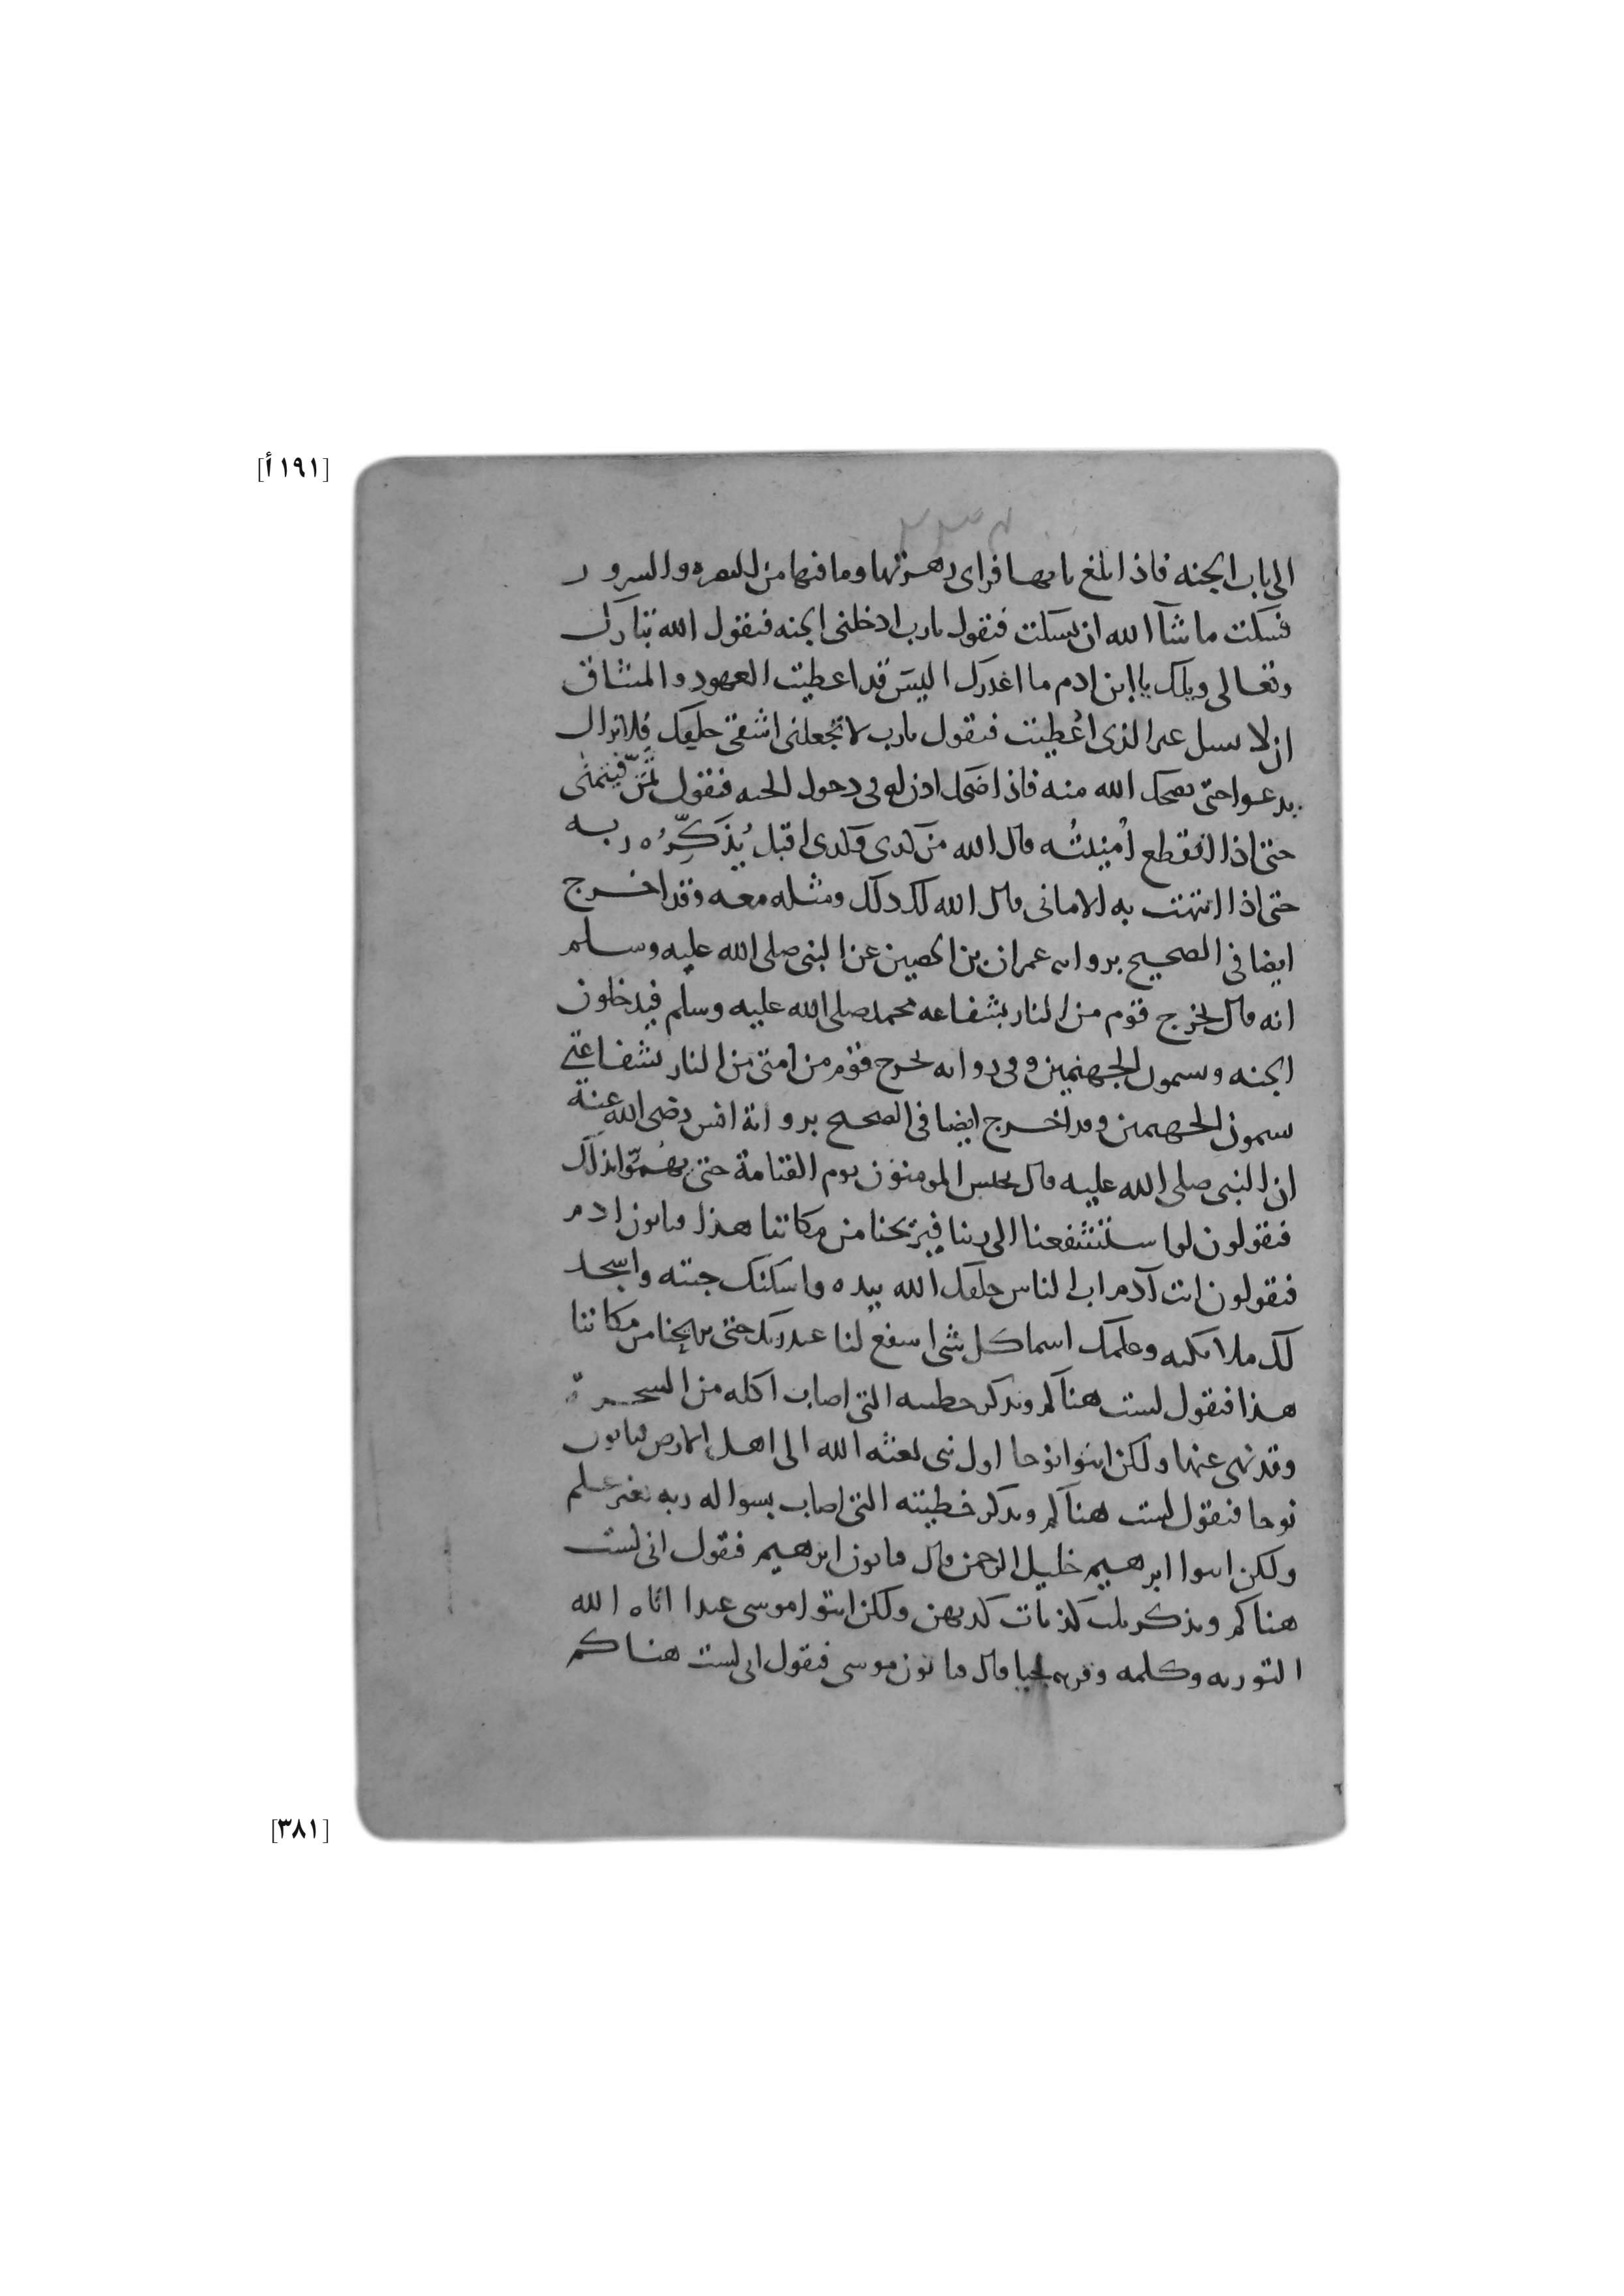 [١٩١أ]
الى باب الجنه فاذا بلغ بابها فراى زهرتها وما فيها من النضره والسرور
فسكت ما شآ الله ان يسكت فيقول يارب ادخلنى الجنه فيقول الله تبارك
وتعالى ويلك يا ابن ادم ما اغدرك اليس قد اعطيت العهود والميثاق
ان لا تسل غير الذى اعطيت فيقول يارب لا تجعلنى اشقى خلقك فلا يزال
يدعوا حتى يضحك الله منه فاذا ضحك اذن له فى دخول الجنه فيقول تمنّ فيتمنى
حتى اذا انقطع اُمنيتُه قال الله من كذى وكذى اقبل يُذَكِّرُه ربه
حتى اذا انتهت به الامانى قال الله لك ذلك ومثله معه وقد اخرج
ايضا فى الصحيح بروايه عمران بن الحصين عن النبى صلى الله عليه وسلم
انه قال يخرج قوم من النار بشفاعه محمد صلى الله عليه وسلم فيدخلون
الجنه ويسمون الجهنميين وفى روايه يخرج قوم من امتى من النار بشفاعتى
يسمون الجهنمين وقد اخرج ايضا فى الصحيح برواية انس رضى الله عنه
ان النبى صلى الله عليه قال يحبس المومنون يوم القيامة حتى يهُمّوا بذلك
فيقولون لو استشفعنا الى ربنا فيريحنا من مكاننا هذا فياتون ادم
فيقولون انت آدم ابو الناس خلقك الله بيده واسكنك جنته واسجد
لك ملايكته وعلمك اسما كل شى اشفع لنا عند ربك حتى يريحنا من مكاننا
هذا فيقول لست هناكم ويذكر خطيته التى اصاب اكله من الشجرة
وقد نهى عنها ولكن ايتوا نوحا اول نبى بعثه الله الى اهل الارض فياتون
نوحا فيقول لست هناكم ويذكر خطيئته التى اصاب بسواله ربه بغير علم
ولكن ايتوا ابرهيم خليل الرحمن قال فياتون ابرهيم فيقول انى لست
هناكم ويذكر ثلث كذبات كذبهن ولكن ايتوا موسى عبدا اتاه الله
التوريه وكلمه وقربه نجيا قال فياتون موسى فيقول انى لست هناكم
[٣٨١]